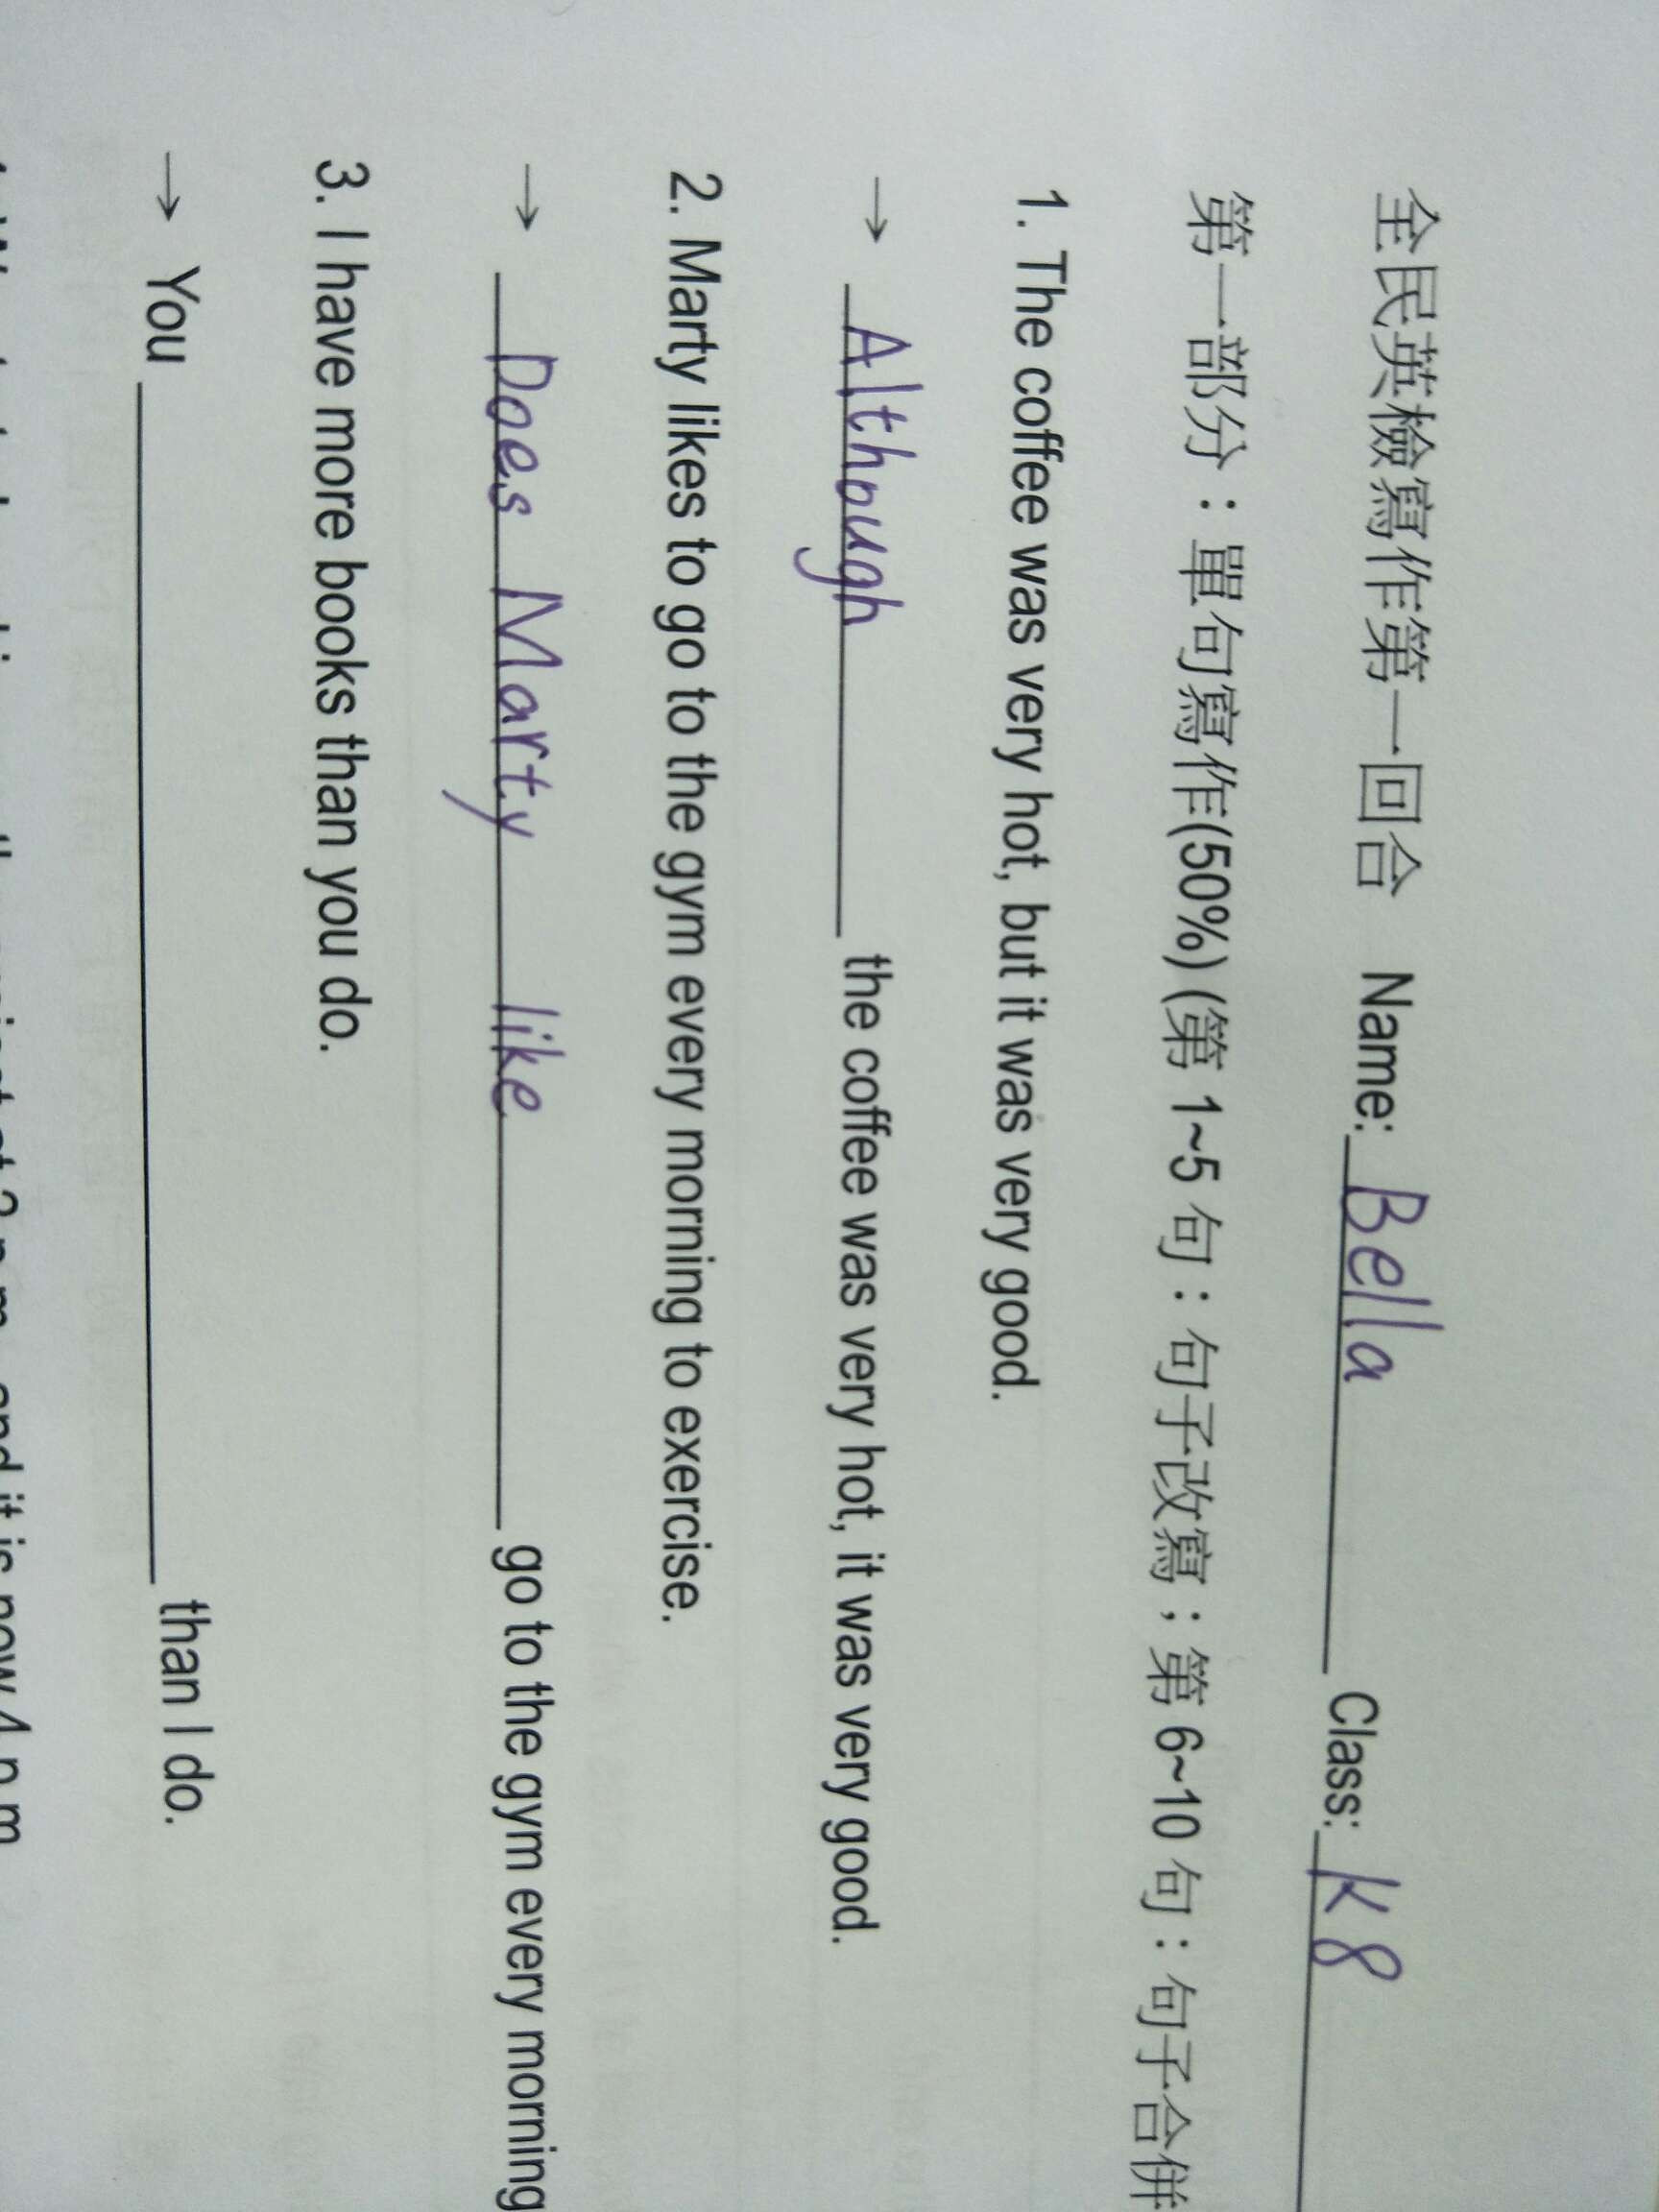 全民英檢寫作第一回合 Name: Bella Class: K8
第一部分：單句寫作(50%) (第 1~5 句：句子改寫；第 6~10 句：句子合併
1. The coffee was very hot, but it was very good.
→ Although the coffee was very hot, it was very good.
2. Marty likes to go to the gym every morning to exercise.
→ Does Marty like go to the gym every morning
3. I have more books than you do.
→ You than I do.
and it is now 4 p.m